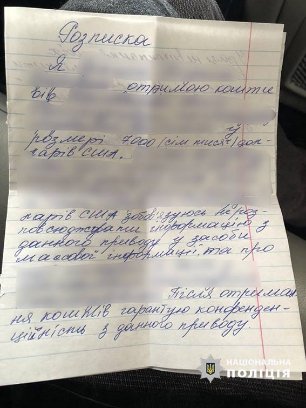 Розписка
Я
отримою кошти
від
у
розмері 7000 (сім тисяч) дол-
ларів США.
ларів США зобов'язуюсь не роз-
повсюджувати інформацію з
данного приводу у засоби
масової інформації, та про
Після отриман-
ня кошків гарантую конфеден-
ційність з данного приводу
НАЦІОНАЛЬНА
ПОЛІЦІЯ